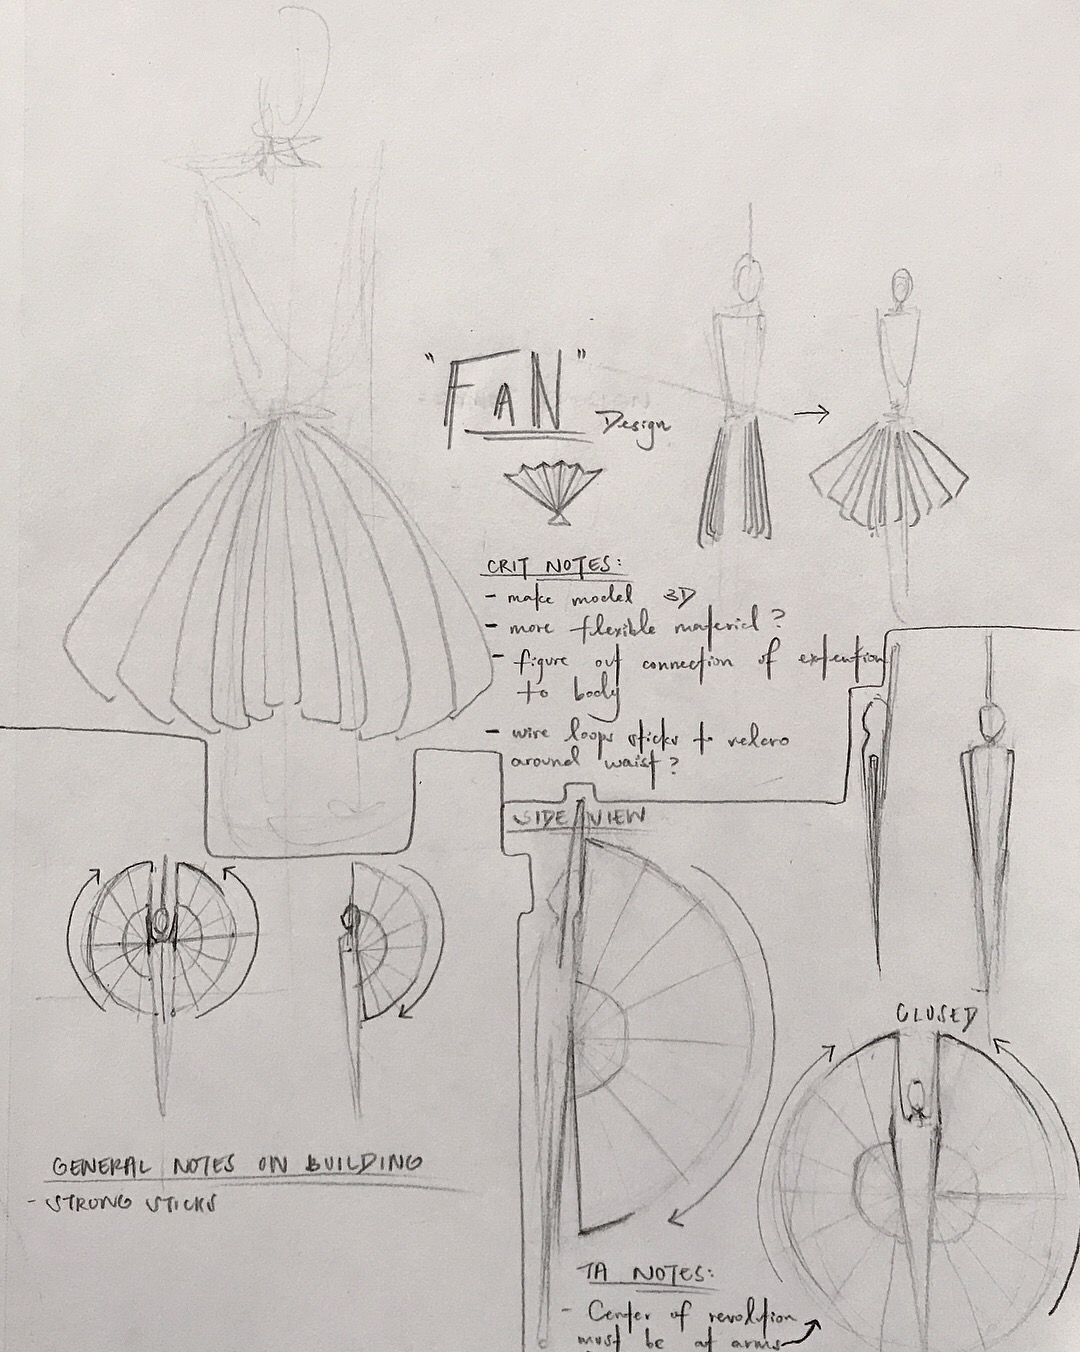 "FAN"
Design
CRIT NOTES:
- make model 3D
- more flexible material?
- figure out connection of extention
to body
- wire loops sticks + velcro
around waist?
SIDE VIEW
CLOSED
GENERAL NOTES ON BUILDING
- STRONG STICKS
TA NOTES:
- Center of revolution
must be at arms